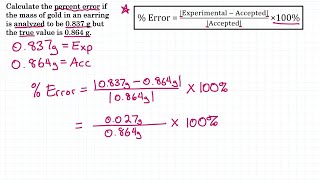 Calculate the percent error if
the mass of gold in an earring
is analyzed to be 0.837 g but
the true value is 0.864 g.
% Error = |Experimental − Accepted| / |Accepted| ×100%
0.837g = Exp
0.864g = Acc
% Error = |0.837g − 0.864g| / |0.864g| × 100%
= 0.027g / 0.864g × 100%